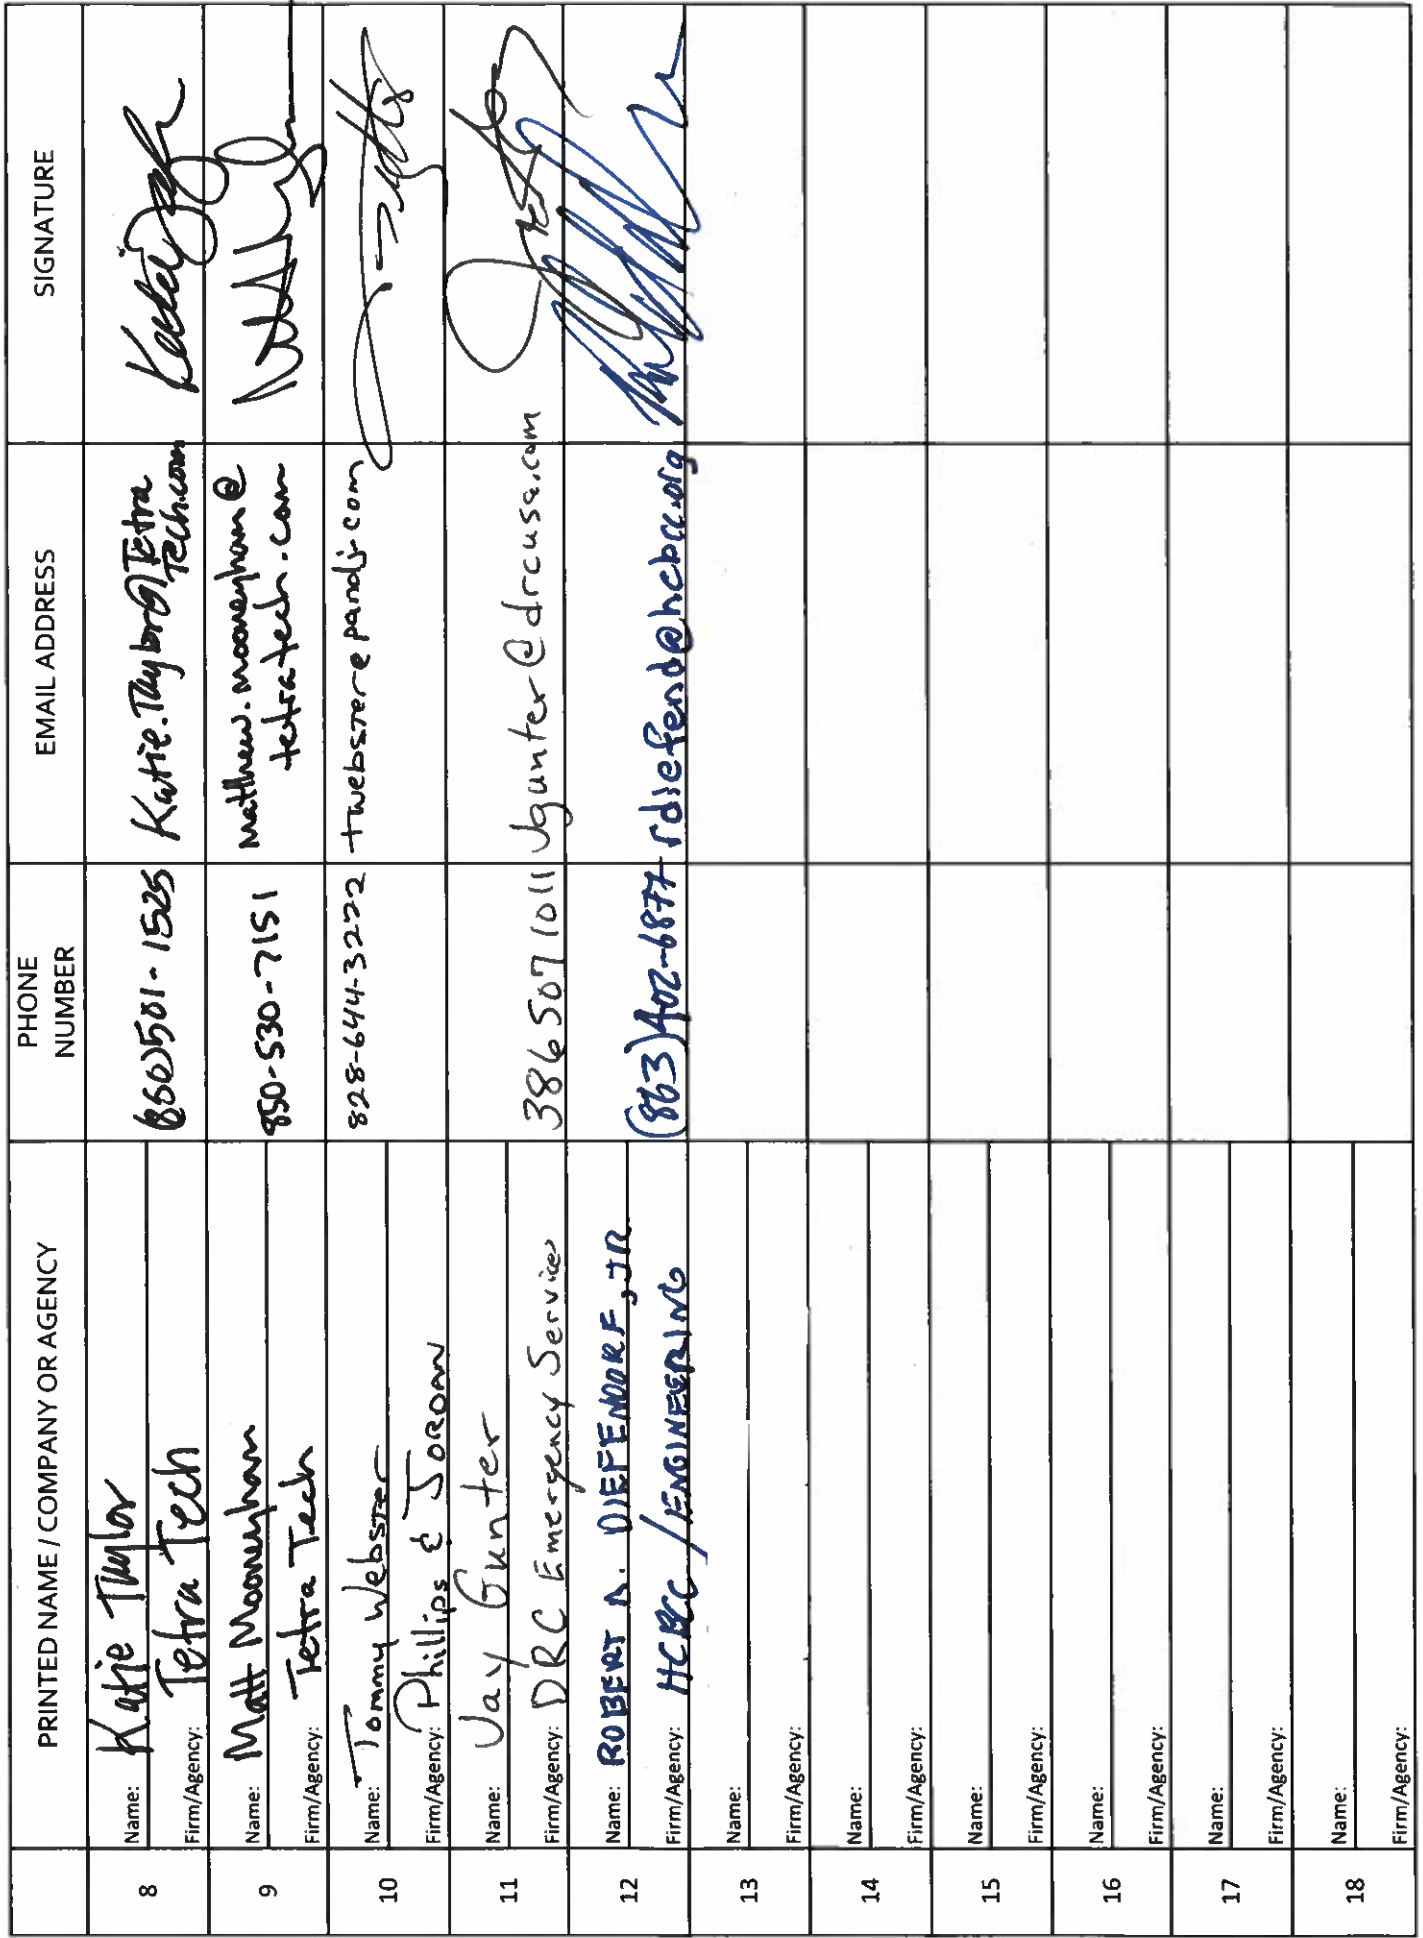 PRINTED NAME / COMPANY OR AGENCY
PHONE
NUMBER
EMAIL ADDRESS
SIGNATURE
8
Name: Katie Taylor
Firm/Agency: Tetra Tech
(850)501-1525
Katie.Taylor@Tetra
Tech.com
9
Name: Matt Mooneyham
Firm/Agency: Tetra Tech
850-530-7151
matthew.mooneyham@
tetratech.com
10
Name: Tommy Webster
Firm/Agency: Phillips & Jordan
828-644-3222
twebster@pandj.com
11
Name: Jay Gunter
Firm/Agency: DRC Emergency Services
386 507 1011
Jgunter@drcusa.com
12
Name: ROBERT A. DIEFENDORF, JR
Firm/Agency: HCBCC / ENGINEERING
(863)402-6877
rdiefend@hcbcc.org
13
Name:
Firm/Agency:
14
Name:
Firm/Agency:
15
Name:
Firm/Agency:
16
Name:
Firm/Agency:
17
Name:
Firm/Agency:
18
Name:
Firm/Agency: